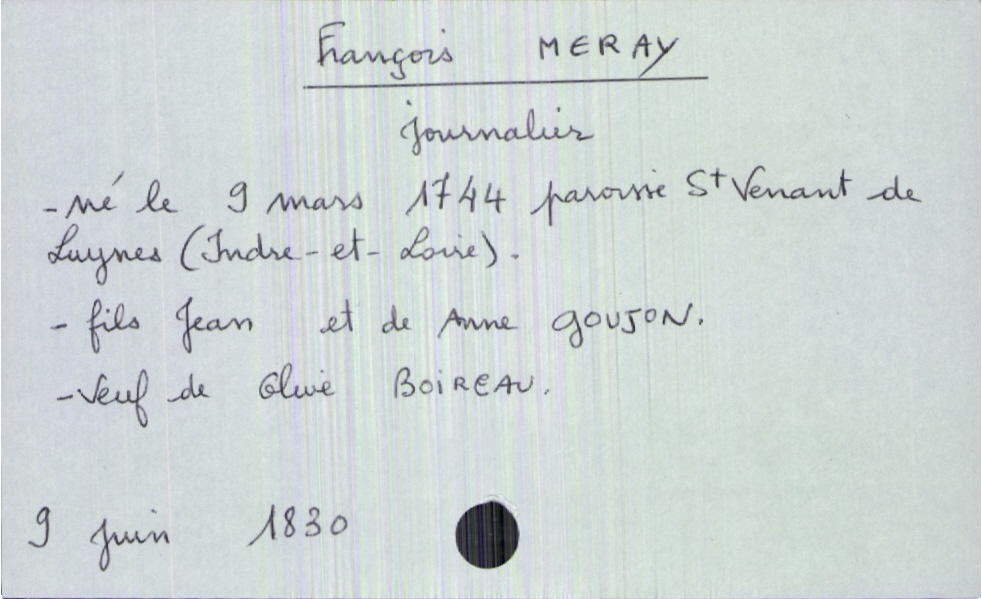 François MERAY
journalier
- né le 9 mars 1744 paroisse St Venant de
Luynes (Indre-et-Loire).
- fils Jean et de Anne GOUJON.
- Veuf de Olive BOIREAU.
9 juin 1830